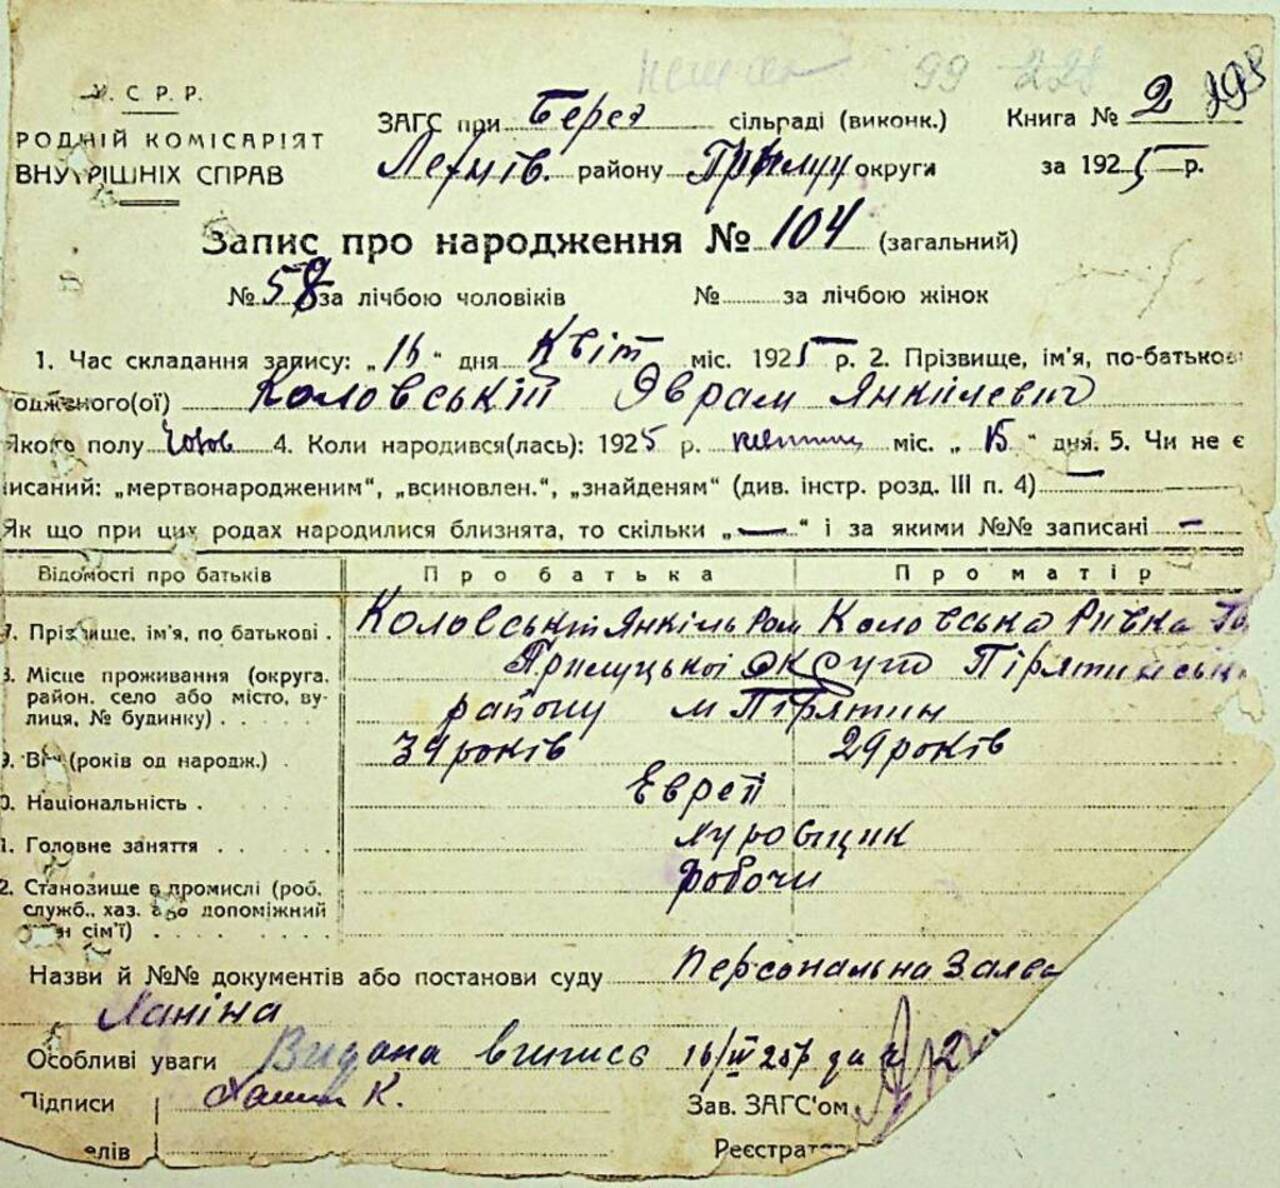 У. С. Р. Р.
РОДНІЙ КОМІСАРІЯТ
ВНУТРІШНІХ СПРАВ
99 228
ЗАГС при Берез сільраді (виконк.) Книга № 2
району Прилуц округи за 1925 р.
Запис про народження № 104 (загальний)
№ 58 за лічбою чоловіків № за лічбою жінок
1. Час складання запису: „16“ дня Квіт міс. 1925 р. 2. Прізвище, ім'я, по-батькові
одженого(ої) Коловський Эврам Янкілевич
Якого полу Чолов 4. Коли народився(лась): 1925 р. міс. „15“ дня. 5. Чи не є
исаний: „мертвонародженим“, „всиновлен.“, „знайденям“ (див. інстр. розд. III п. 4) —
Як що при цих родах народилися близнята, то скільки „—“ і за якими №№ записані —
Відомості про батьків Про батька Про матір
7. Прізвище, ім'я, по батькові . Коловський Янкіль Ром Коловська Ривка
8. Місце проживання (округа, район, село або місто, вулиця, № будинку) . . . . . Прилуцької округи Пірятинськ
району м Пірятин
9. Вік (років од народж.) . 34 років 29 років
0. Національність . Евреї
1. Головне заняття . . . . .
2. Становище в промислі (роб. служб., хаз. або допоміжний
н сім'ї) . . . . . . . робочи
Назви й №№ документів або постанови суду Персональна Заява
Ханіна
Особливі уваги Видана випись 16/IV 25р за № 12
Підписи К. Зав. ЗАГС'ом
елів Реєстрат